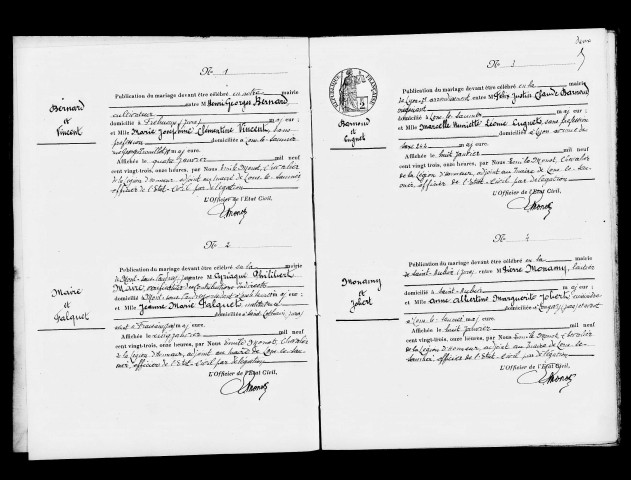 Nº 1
Bernard
et
Vincent
Publication du mariage devant être célébré en notre mairie
entre M Henri Georges Bernard
cultivateur
domicilié à Frébuans (Jura) majeur
et Mlle Marie Joséphine Clémentine Vincent, sans
profession domiciliée à Lons-le-Saunier
majeure.
Affichée le quatre janvier mil neuf
cent vingt-trois, onze heures, par Nous Emile Monot, Chevalier
de la Légion d'Honneur, adjoint au Maire de Lons-le-Saunier
officier de l'Etat-Civil par délégation
L'Officier de l'Etat Civil,
EMonot
Nº 2
Maire
et
Palquet
Publication du mariage devant être célébré en la mairie
de Mont-sous-Vaudrey (Jura) entre M. Cyriaque Philibert
Maire, vérificateur des Contributions Indirectes
domicilié à Mont-sous-Vaudrey majeur
et Mlle Jeanne Marie Palquet institutrice
domiciliée à
majeure.
Affichée le cinq janvier mil neuf
cent vingt-trois, onze heures, par Nous Emile Monot, Chevalier
de la Légion d'Honneur, adjoint au Maire de Lons-le-Sau-
nier, officier de l'Etat-Civil par délégation
L'Officier de l'Etat Civil,
EMonot
deux
Nº 3
RÉPUBLIQUE FRANÇAISE
2
Barnoud
et
Cuguet
Publication du mariage devant être célébré en la mairie
de Lyon 3e arrondissement entre M Félix Justin Claude Barnoud
domicilié à Lons-le-Saunier majeur
et Mlle Marcelle Henriette Léona Cuguet, sans profession
domiciliée à Lyon avenue de
Saxe 244 majeure.
Affichée le huit janvier mil neuf
cent vingt-trois, onze heures, par Nous Emile Monot, Chevalier
de la Légion d'Honneur, adjoint au Maire de Lons-le-Sau-
nier, officier de l'Etat-Civil par délégation
L'Officier de l'Etat Civil,
EMonot
Nº 4
Monamy
et
Jobert
Publication du mariage devant être célébré en la mairie
de Saint-Aubin (Jura) entre M Pierre Monamy,
domicilié à Saint-Aubin majeur
et Mlle Anne Albertine Marguerite Jobert,
domiciliée à
à Lons-le-Saunier majeure.
Affichée le huit janvier mil neuf
cent vingt-trois, onze heures, par Nous Emile Monot, Chevalier
de la Légion d'Honneur, adjoint au Maire de Lons-le-
Saunier, officier de l'Etat-Civil par délégation
L'Officier de l'Etat Civil,
EMonot